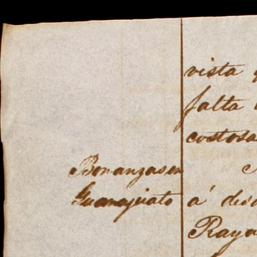 vista
falta
costosa
Bonanzas en
Guanajuato
á des
Raya